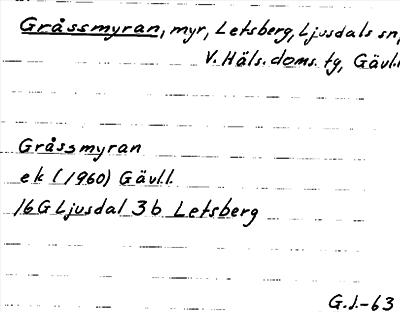 Gråssmyran, myr, Letsberg, Ljusdals sn,
V. Häls. doms. tg, Gävl.l
Gråssmyran
ek (1960) Gävl.l.
16G Ljusdal 3b Letsberg
G.J.-63